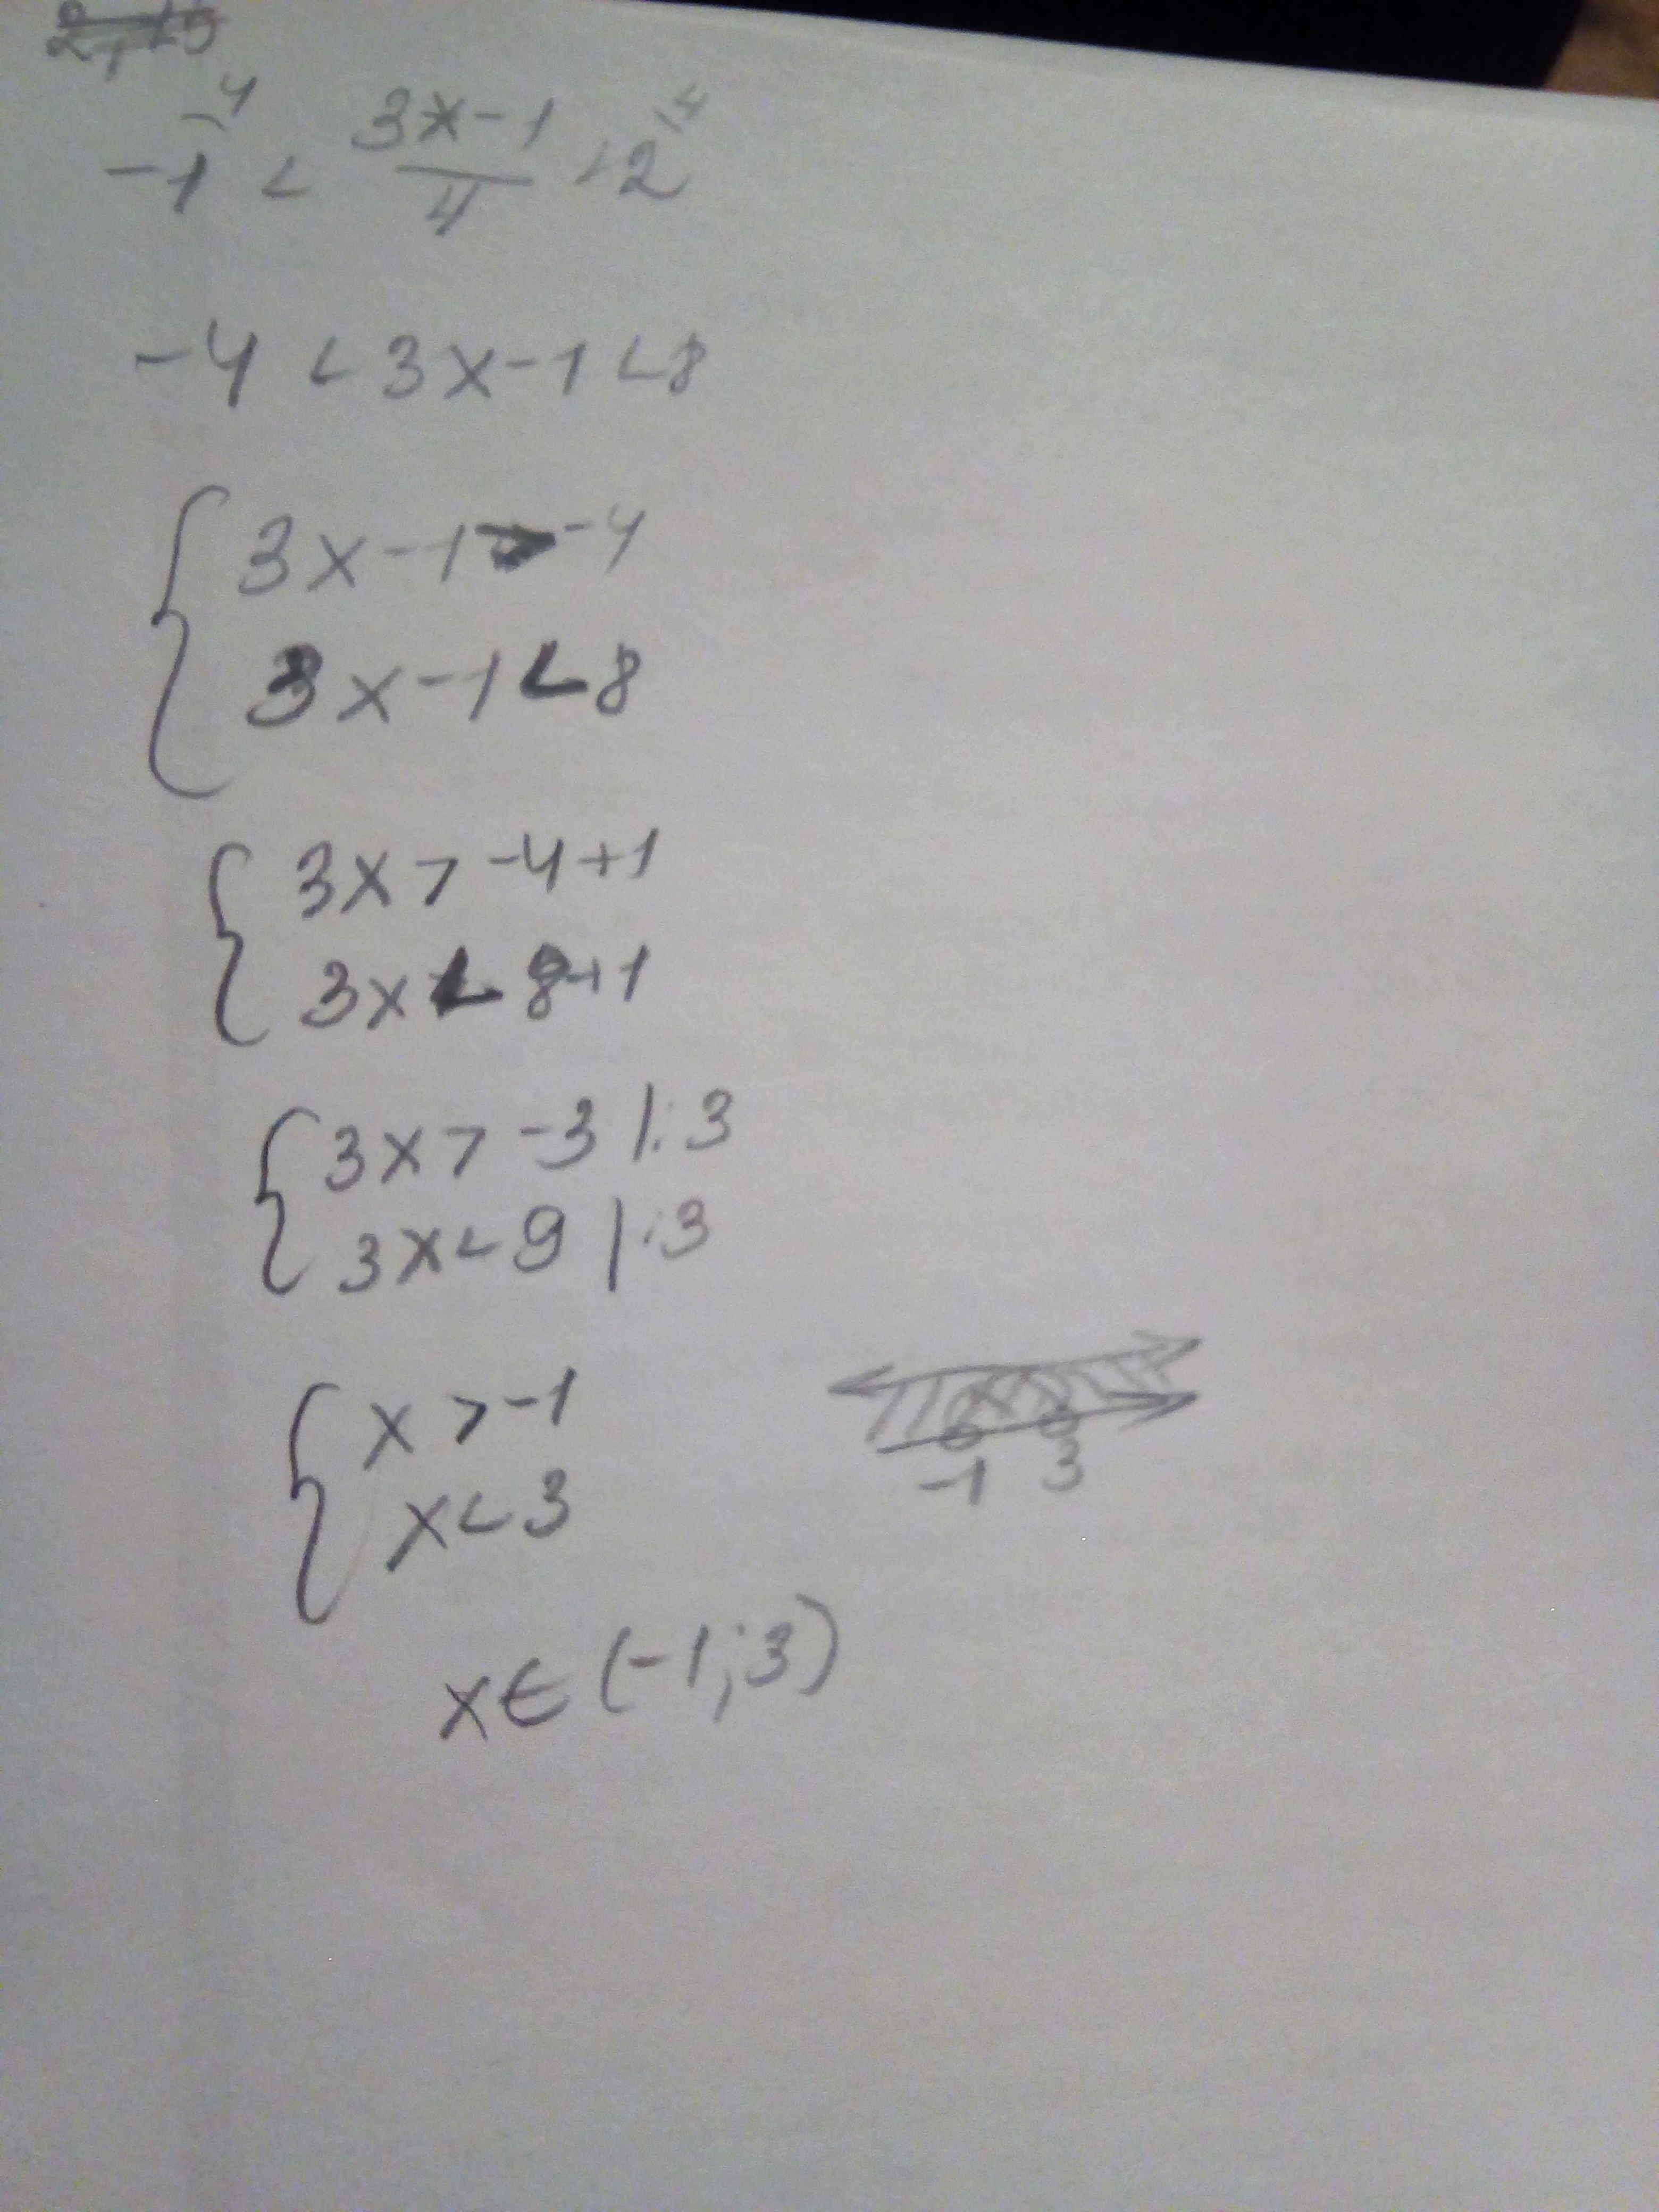 -1⁴ < (3x-1)/4 < 2⁴
-4 < 3x-1 < 8
{ 3x-1 > -4
3x-1 < 8
{ 3x > -4+1
3x < 8+1
{ 3x > -3 |:3
3x < 9 |:3
{ x > -1
x < 3
-1 3
x∈(-1;3)